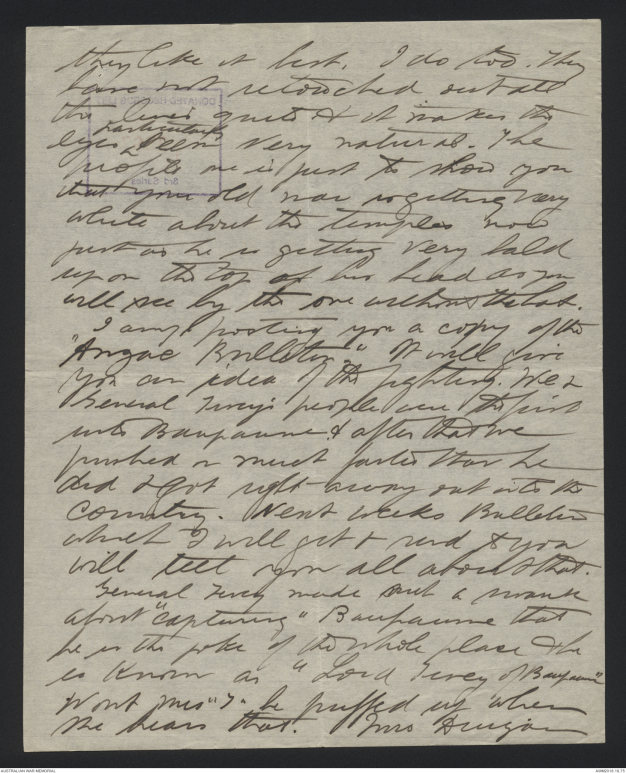 they like it best. I do too. They
have not retouched out all
the lines quite & it makes the
particularly
eyes seem very natural. The
profile one is just to show you
that your old man is getting very
white about the temples now
just as he is getting very bald
up on the top of his head as you
will see by the one without the hat.
I am posting you a copy of the
"Anzac Bulletin," It will give
you an idea of the fighting. We &
General Tivey's people were the first
into Bapaume & after that we
pushed on much faster than he
did & got right away out into the
Country. Next weeks Bulletin
which I will get & send to you
will tell you all about that.
General Tivey made such a
about "capturing" Bapaume that
he is the joke of the whole place & he
is known as "Lord Tivey of Bapaume"
Wont Mrs "T" be puffed up when
she hears that. Mrs
AUSTRALIAN WAR MEMORIAL